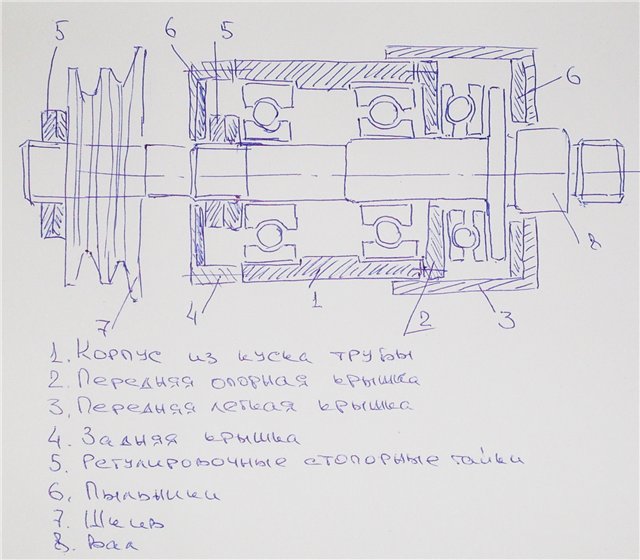 5
6
5
6
7
4
1
2
3
8
1. Корпус из куска трубы
2. Передняя опорная крышка
3. Передняя легкая крышка
4. Задняя крышка
5. Регулировочные стопорные гайки
6. Пыльники
7. Шкив
8. Вал